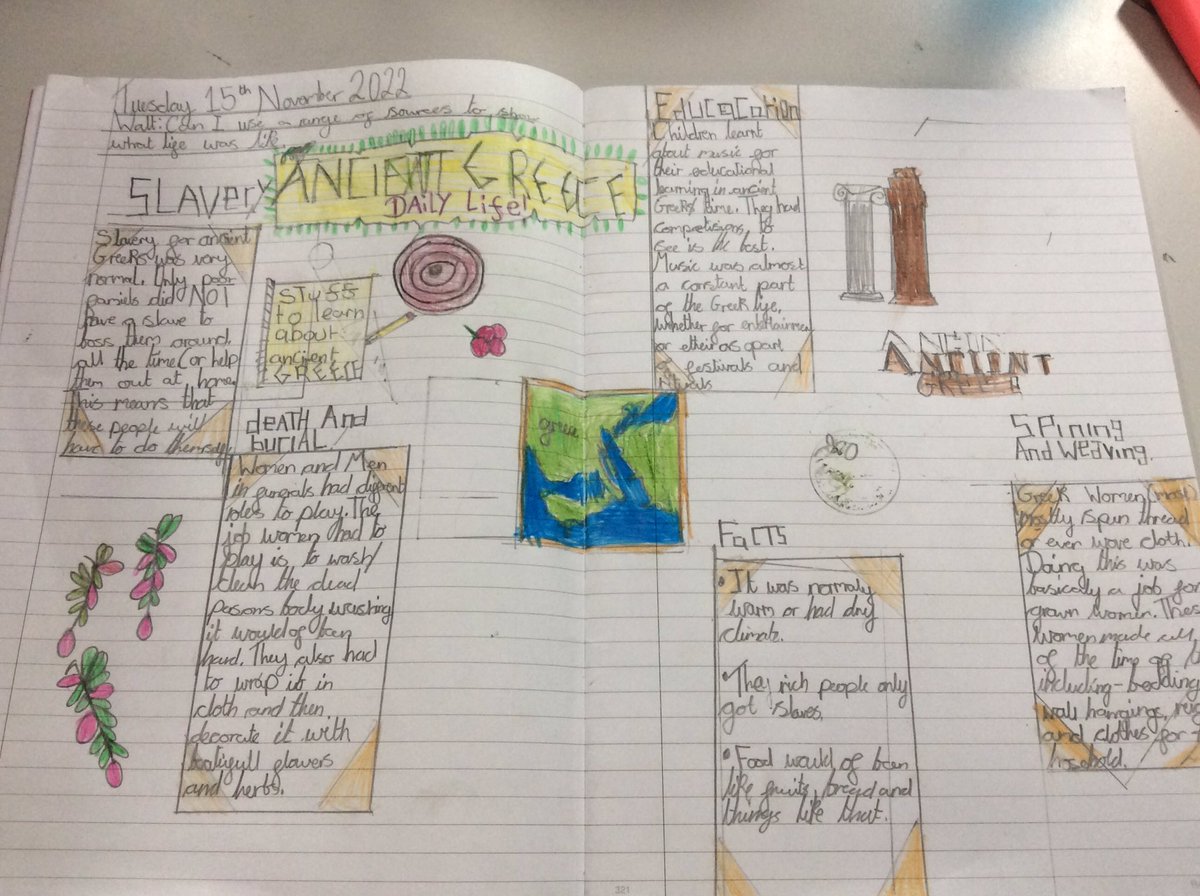 Tuesday 15th November 2022
Walt: Can I use a range of sources to show
what life was like.
ANCIENT GREECE
DAILY Life!
SLAVERY
Slavery for ancient
Greeks was very
normal. Only poor
did NOT
have a slave to
boss them around
all the time (or help
them out at home
This means that
these people will
have to do themself
STUFF
to learn
about
ancient
GREECE
dEATH And
bURIAL
Women and Men
in funerals had different
roles to play. The
job women had to
play is to wash/
clean the dead
body washing
it would of ben
hard. They also had
to wrap it in
cloth and then
decorate it with
flowers
and herbs.
EducaCation
Children learnt
about music for
their educational
learning in ancient
Greeks time. They had
to
see is the best.
Music was almost
a constant part
of the Greek life,
whether for
or as apart
festivals and
rituals
ANCIENT
GREECE
FaCTS
• It was normaly
warm or had dry
climate.
• They rich people only
got slaves.
• Food would of ben
like fruits, bread and
things like that.
SPining
And Weaving.
Greek Women (most
mostly spun thread
or even wove cloth.
Doing this was
basically a job for
grown women. These
women made all
of the time of
including - bedding
wall hangings,
and clothes for
houshold.
321